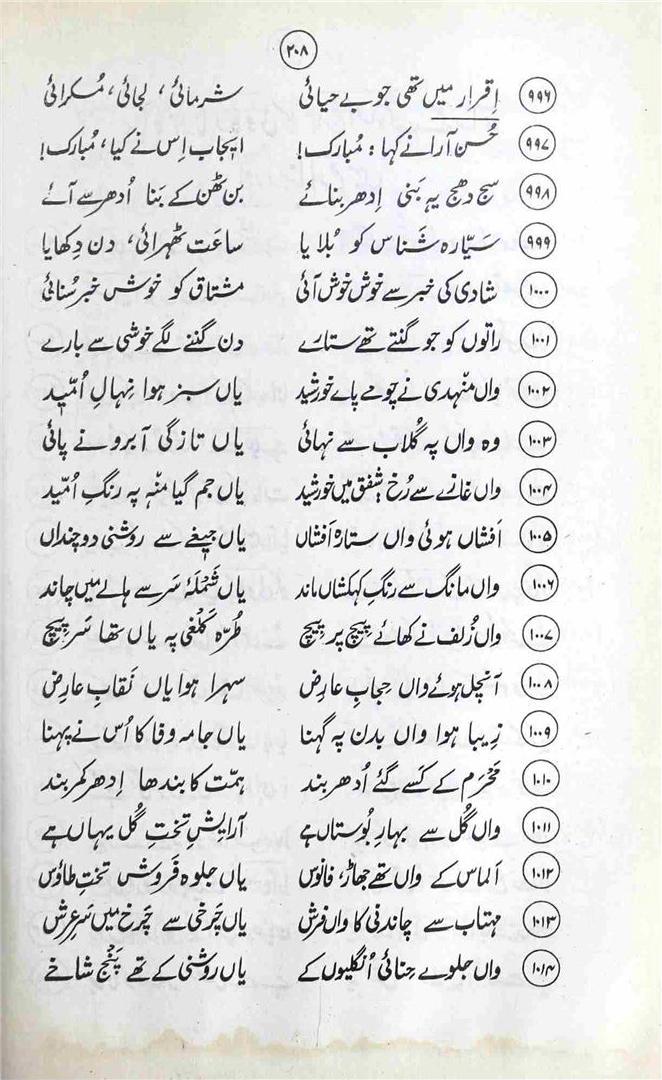 ۲۰۸
۹۹۶ اِقرار میں تھی جو بے حیائی شرمائی، لجائی، مُسکرائی
۹۹۷ حُسن آرا نے کہا: مُبارک! ایجاب اِس نے کیا، مُبارک!
۹۹۸ سج دھج یہ بَنی اِدھر بنائے بن ٹھن کے بَنا اُدھر سے آئے
۹۹۹ سَیّارہ شَناس کو بُلایا ساعَت ٹھہرائی، دن دِکھایا
۱۰۰۰ شادی کی خبر سے خوش خوش آئی مشتاق کو خوش خبر سُنائی
۱۰۰۱ راتوں کو جو گنتے تھے ستارے دن گننے لگے خوشی سے بارے
۱۰۰۲ واں منہدی نے چومے پاے خورشید یاں سبز ہوا نِہالِ اُمّید
۱۰۰۳ وہ واں پہ گُلاب سے نہائی یاں تازگی آبرو نے پائی
۱۰۰۴ واں غازے سے رُخ شفق میں خورشید یاں جم گیا منہ پہ رنگِ اُمّید
۱۰۰۵ اَفشاں ہوئی واں ستارہ اَفشاں یاں جیغے سے روشنی دو چنداں
۱۰۰۶ واں مانگ سے رنگِ کہکشاں ماند یاں شَمْلَۂ سَر سے ہالے میں چاند
۱۰۰۷ واں زُلف نے کھائے پیچ پر پیچ طُرّہ کَلْغی پہ یاں تھا سَر پیچ
۱۰۰۸ آنچل ہوئے واں حِجابِ عارِض سہرا ہوا یاں نَقابِ عارِض
۱۰۰۹ زیبا ہوا واں بدن پہ گہنا یاں جامہ وفا کا اُس نے پہنا
۱۰۱۰ مَحْرَم کے کَسے گئے اُدھر بند ہمّت کا بندھا اِدھر کمر بند
۱۰۱۱ واں گُل سے بہارِ بُوستاں ہے آرایشِ تختِ گُل یہاں ہے
۱۰۱۲ اَلماس کے واں تھے جھاڑ، فانوس یاں جلوہ فَروش تختِ طاؤس
۱۰۱۳ مہتاب سے چاندنی کا واں فرش یاں چَرخی سے چَرخ میں سَرِ عرش
۱۰۱۴ واں جلوے حِنائی اُنگلیوں کے یاں روشنی کے تھے پَنْج شاخے